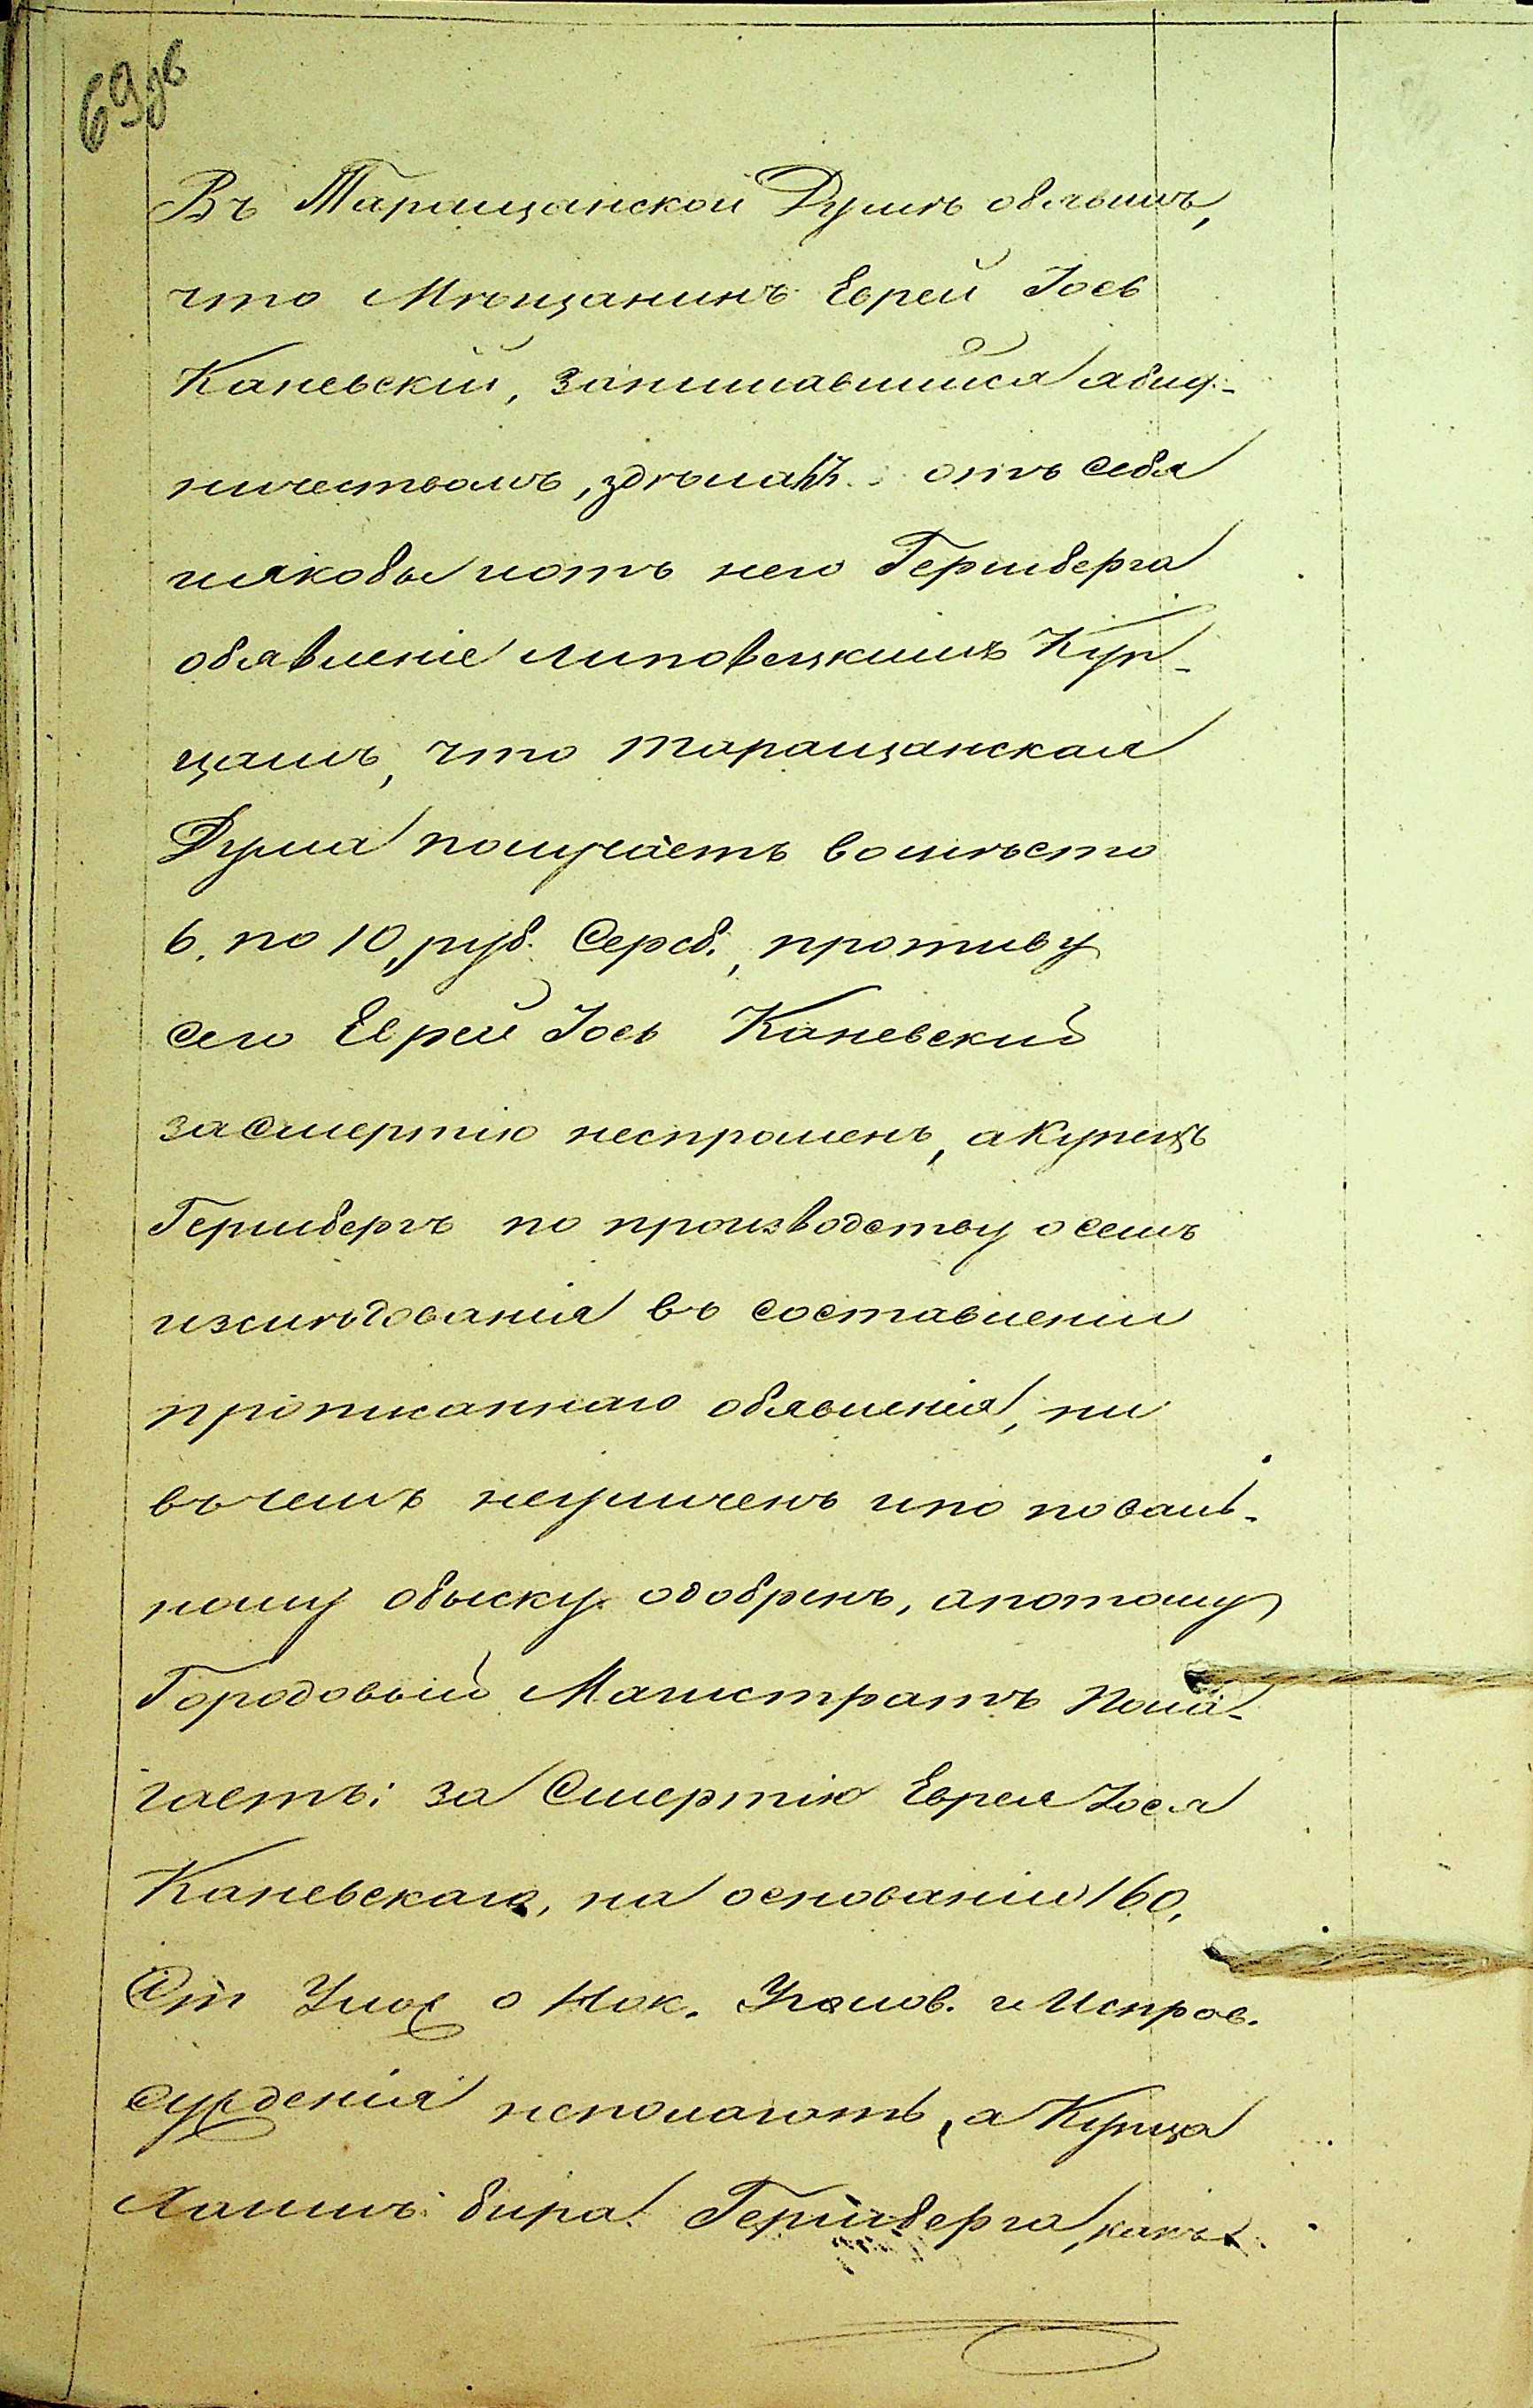 69об
Въ Таращанской Думѣ обявилъ,
что Мѣщанинъ Еврей Іось
Каневскій, занимавшийся ябед-
ничествомъ, здѣлалъ отъ себя
ияковы иотъ него Гершберга
обявленіе липовецкимъ Куп-
цамъ, что таращанская
Дума получаетъ вомѣсто
6. по 10, руб. Серсб., противу
сего Еврей Іось Каневский
засмертію неспрошенъ, а Купецъ
Гершбергъ по производству осемъ
изслѣдованія въ составленіи
прописаннаго обявленія, ни
въчемъ неуличенъ ипо поваль-
ному обыску одобренъ, апотому
Городовый Магистратъ Пола-
гаетъ: за Смертію Еврея Іося
Каневскаго, на основаніи 160,
Ст Улож о Нак. Уголов. и Исправ.
сужденія неполагать, а Купца
бира Гершберга, какъ